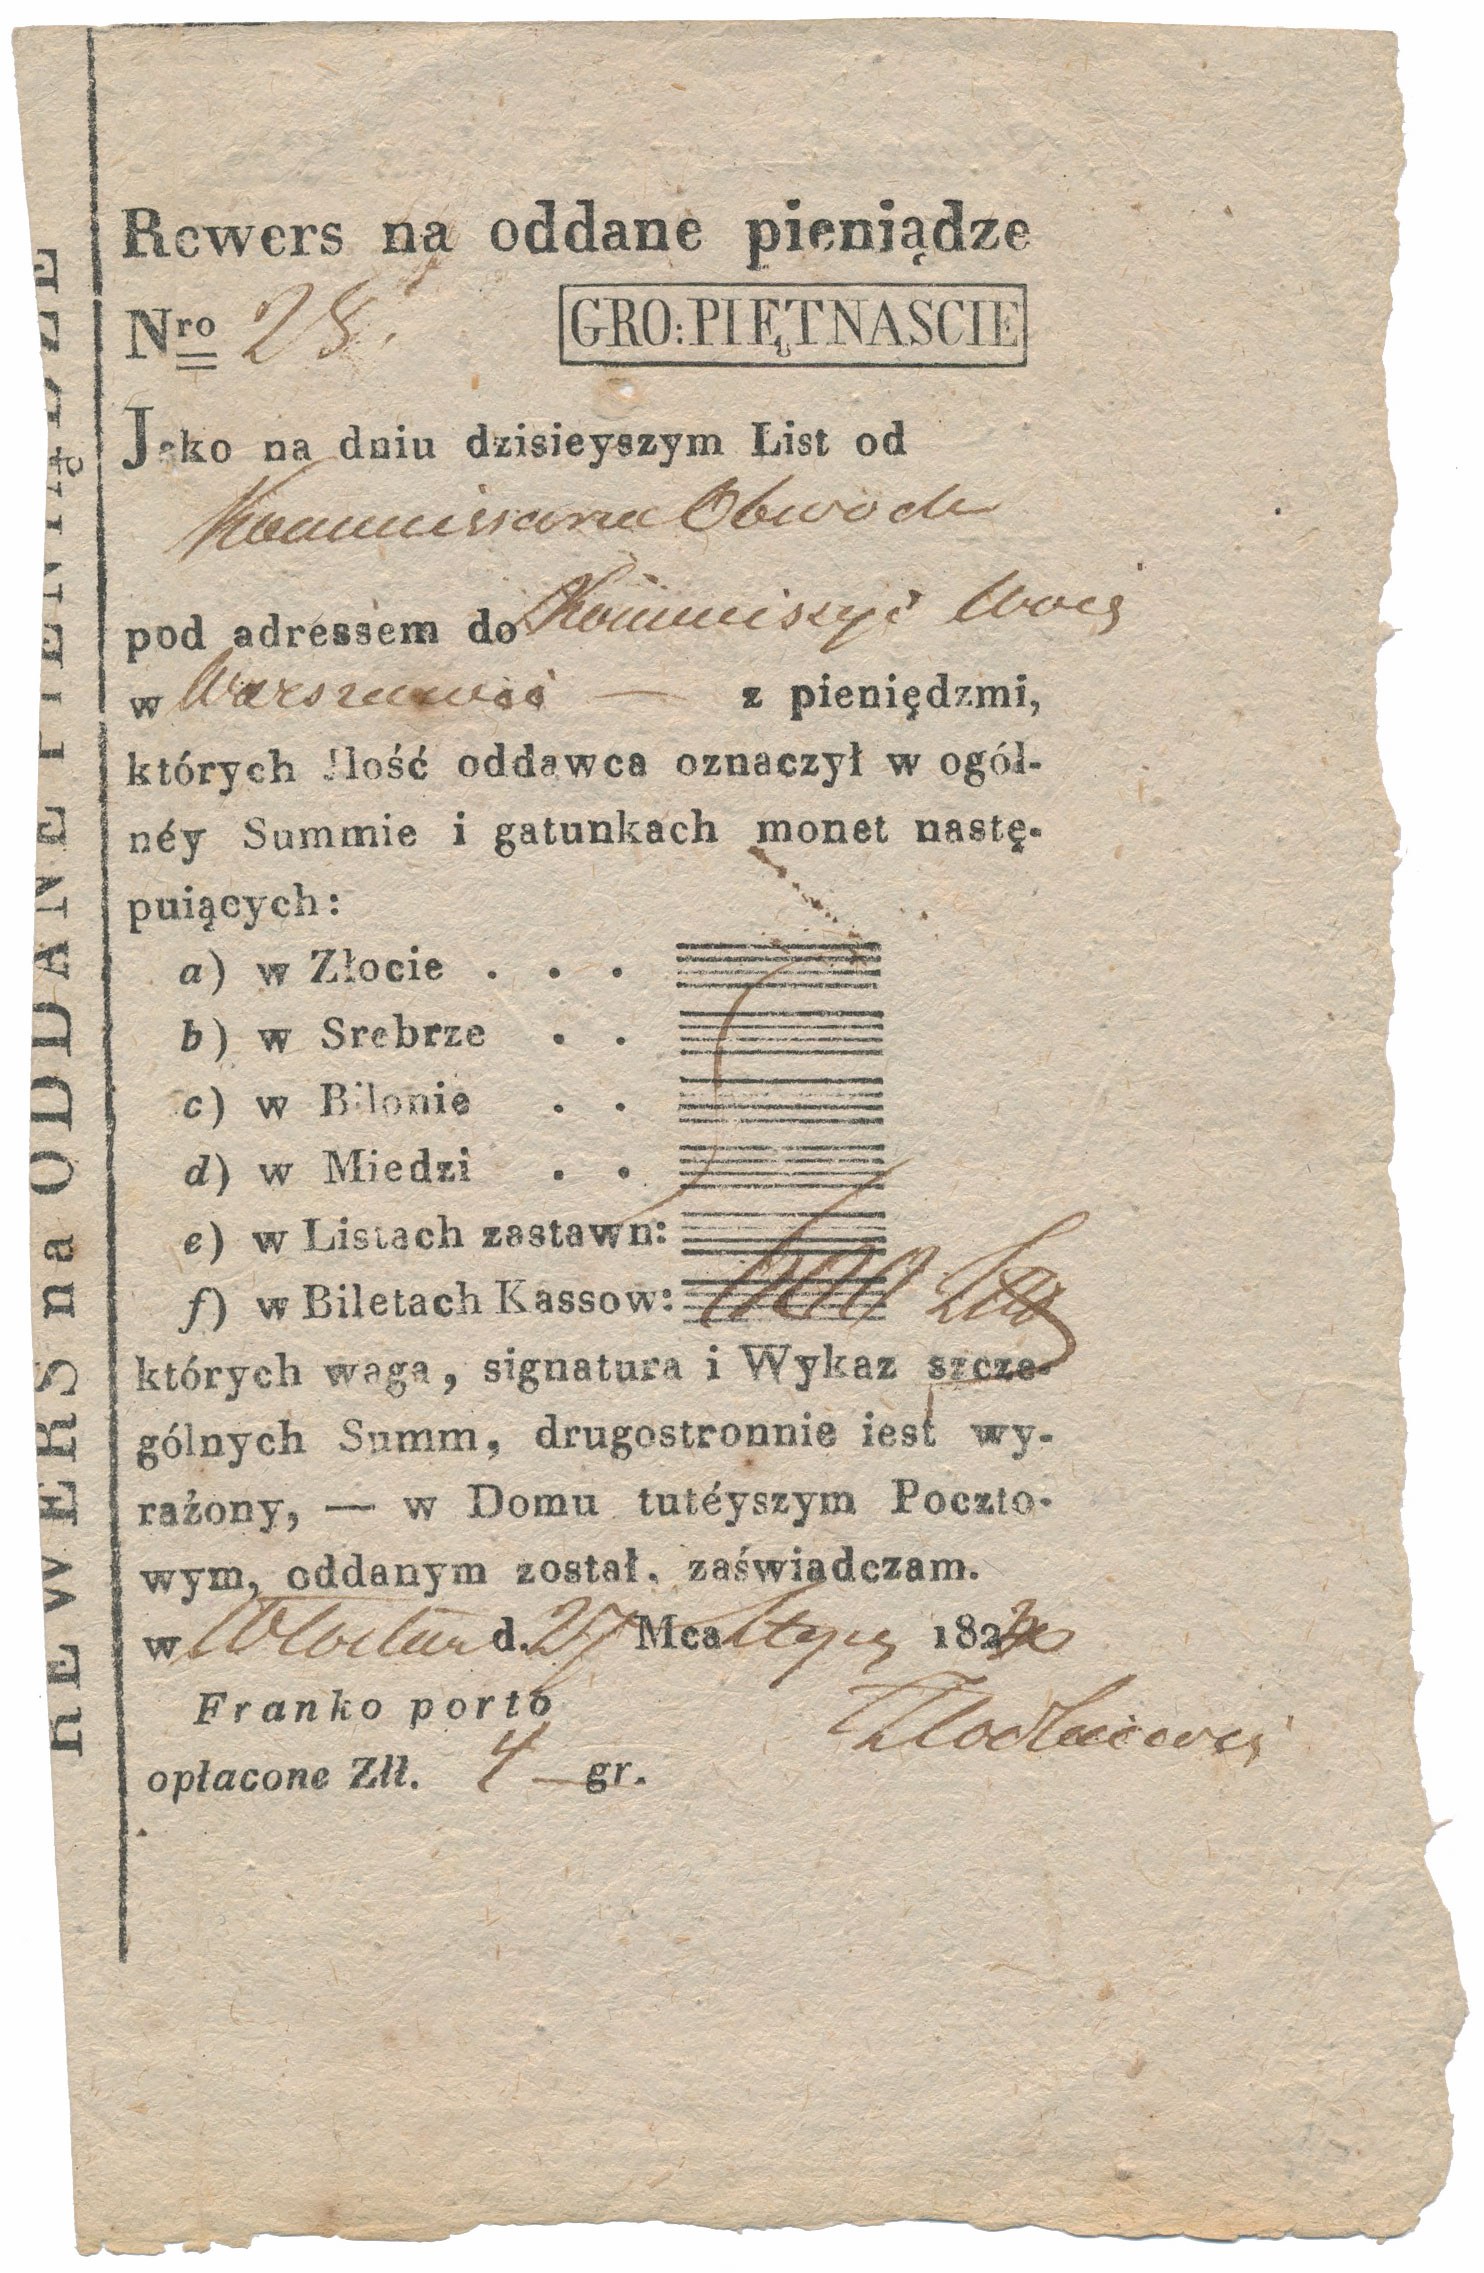 REWERS na ODDANE PIENIĄDZE
Rewers na oddane pieniądze
Nro 28.
GRO: PIĘTNASCIE
Jako na dniu dzisieyszym List od
Kommissarza Obwodu
pod adressem do Kommissyi Woie
w Warszawie — z pieniędzmi,
których ilość oddawca oznaczył w ogól-
néy Summie i gatunkach monet nastę-
puiących:
a) w Złocie . . .
b) w Srebrze . .
c) w Bilonie . .
d) w Miedzi . .
e) w Listach zastawn:
f) w Biletach Kassow: 600
których waga, signatura i Wykaz szcze-
gólnych Summ, drugostronnie iest wy-
rażony, — w Domu tutéyszym Poczto-
wym, oddanym został, zaświadczam.
w d. 27 Mca Stycz 182
Franko porto
opłacone Złł. 4 — gr.